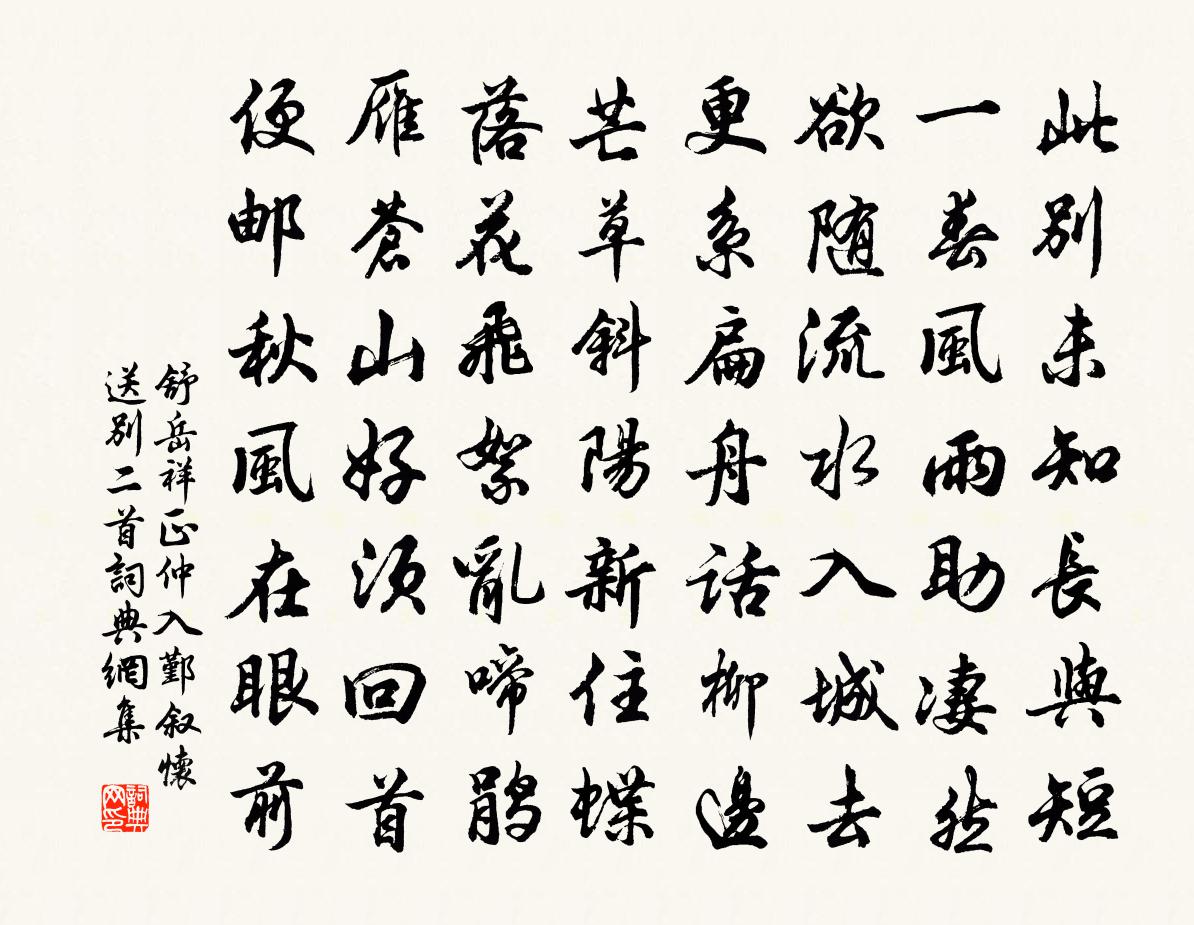 此别未知長與短
一春風雨助淒然
欲随流水入城去
更系扁舟話柳邊
芒草斜陽新住蝶
落花飛絮亂啼鵑
雁蒼山好须回首
便邮秋風在眼前
舒岳祥正仲入鄞叙懷
送别二首詞典網集
詞典
网印